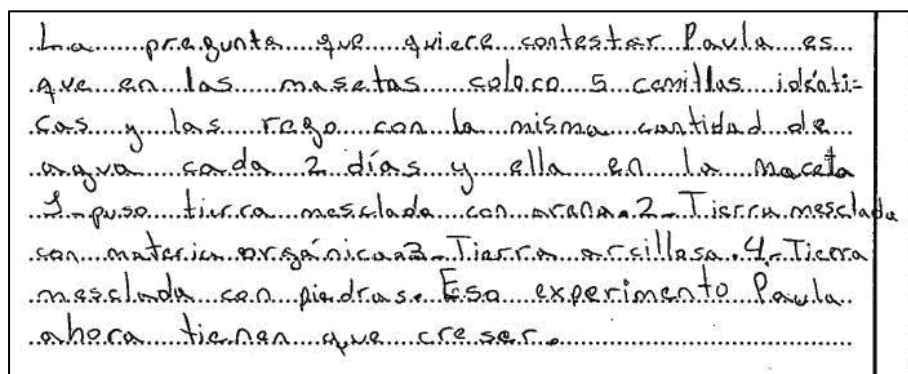 La pregunta que quiere contestar Paula es
que en las masetas coloco 5 cemillas idénti=
cas y las rego con la misma cantidad de
agua cada 2 días y ella en la maceta
1-puso tierra mesclada con arena. 2-Tierra mesclada
con materia orgánica. 3-Tierra arcillosa. 4.-Tierra
mesclada con piedras. Eso experimento Paula
ahora tienen que creser.